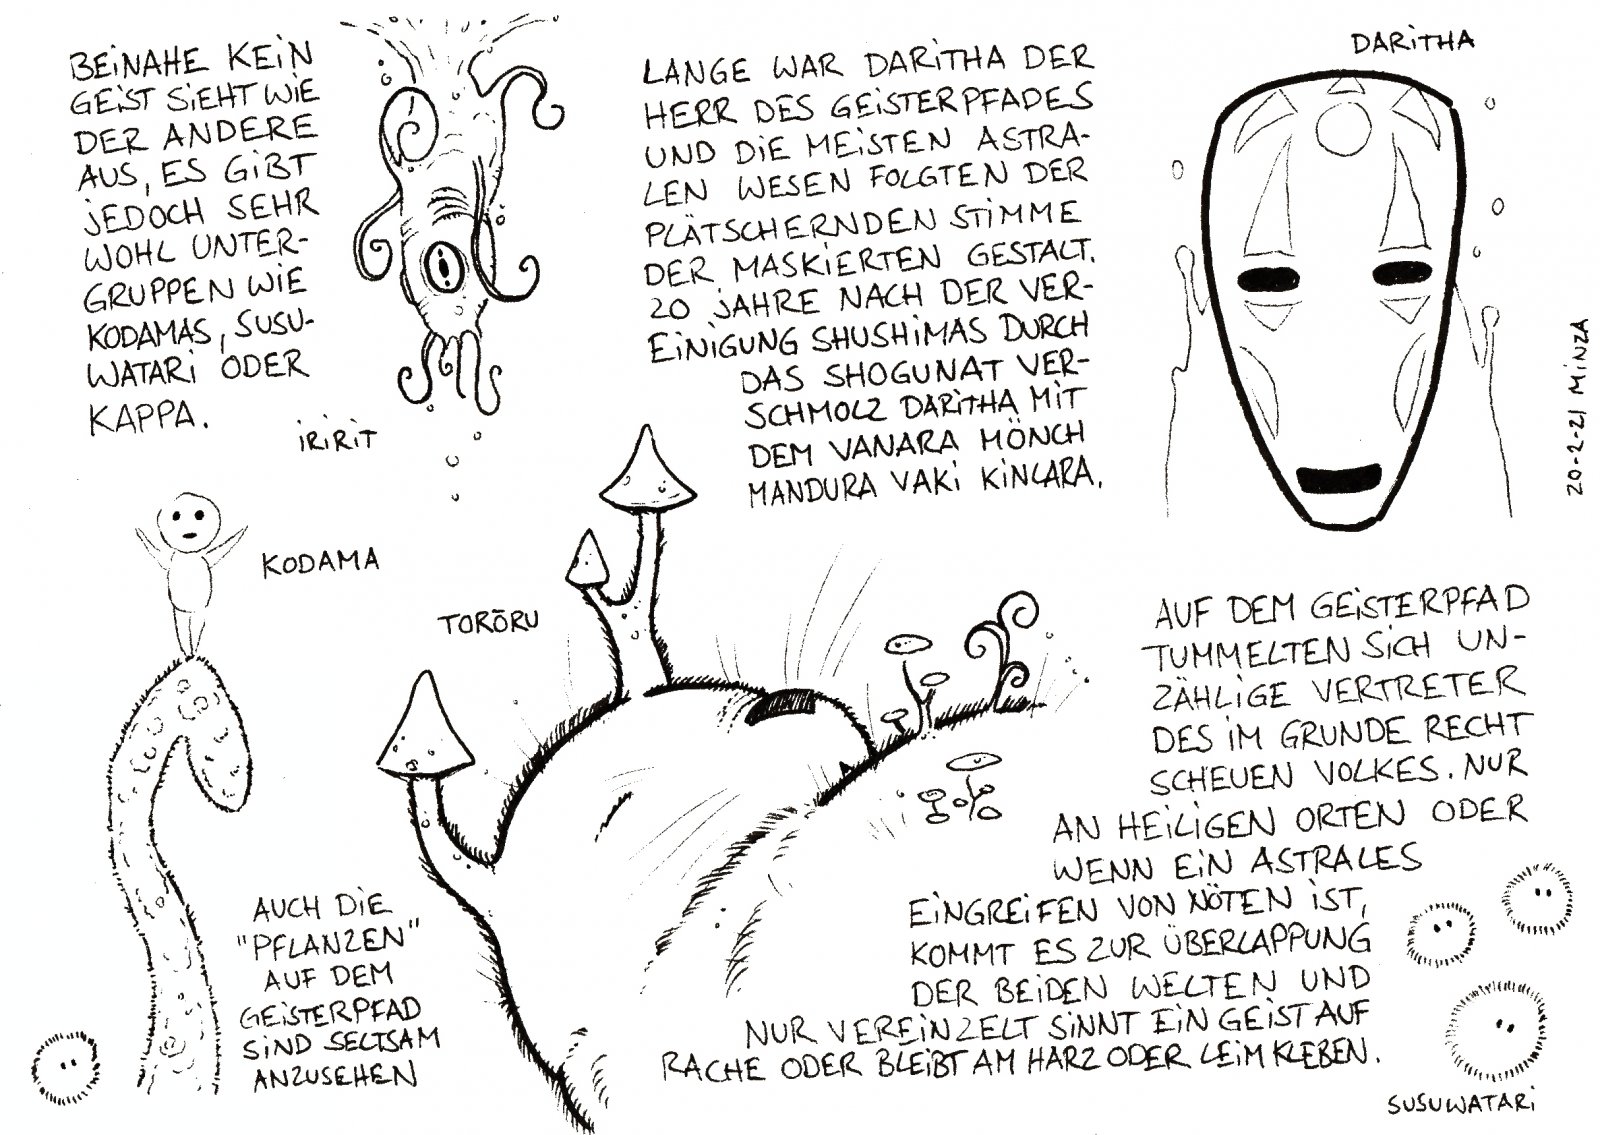 BEINAHE KEIN
GEIST SIEHT WIE
DER ANDERE
AUS, ES GIBT
JEDOCH SEHR
WOHL UNTER-
GRUPPEN WIE
KODAMAS, SUSU-
WATARI ODER
KAPPA.
IRIRIT
LANGE WAR DARITHA DER
HERR DES GEISTERPFADES
UND DIE MEISTEN ASTRA-
LEN WESEN FOLGTEN DER
PLÄTSCHERNDEN STIMME
DER MASKIERTEN GESTALT.
20 JAHRE NACH DER VER-
EINIGUNG SHUSHIMAS DURCH
DAS SHOGUNAT VER-
SCHMOLZ DARITHA MIT
DEM VANARA MÖNCH
MANDURA VAKI KINCARA.
DARITHA
20-2-21 MINZA
KODAMA
TORŌRU
AUF DEM GEISTERPFAD
TUMMELTEN SICH UN-
ZÄHLIGE VERTRETER
DES IM GRUNDE RECHT
SCHEUEN VOLKES. NUR
AN HEILIGEN ORTEN ODER
WENN EIN ASTRALES
EINGREIFEN VON NÖTEN IST,
KOMMT ES ZUR ÜBERLAPPUNG
DER BEIDEN WELTEN UND
NUR VEREINZELT SINNT EIN GEIST AUF
RACHE ODER BLEIBT AM HARZ ODER LEIM KLEBEN.
AUCH DIE
"PFLANZEN"
AUF DEM
GEISTERPFAD
SIND SELTSAM
ANZUSEHEN
SUSUWATARI